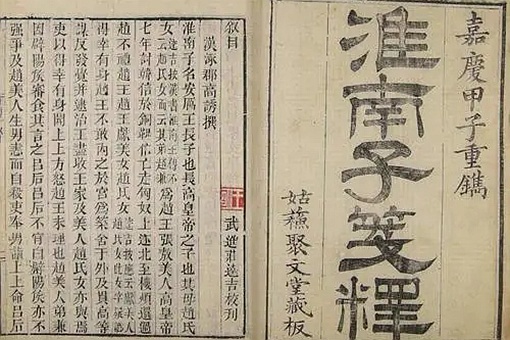 嘉慶甲子重鐫
淮南子箋釋
姑蘇聚文堂藏板
叙目
武進莊逵吉校刊
漢涿郡高誘撰
淮南子名安厲王長子也長高皇帝之子也其母趙氏
女為趙王張敖美人高皇帝
七年討韓信於銅鞮信亡走匈奴上遂北至樓煩還過
趙不禮趙王趙王獻美女趙氏女
得幸有身趙王不敢內之於宮為築舍于外及貫高等
謀反發覺并逮治王盡收王家及美人趙氏女亦與焉
吏以得幸有身聞上上方怒趙王未理也趙美人弟兼
因辟陽侯審食其言之呂后呂后不肯白辟陽侯亦不
強爭及趙美人生男恚而自殺吏奉男詣上上命呂后